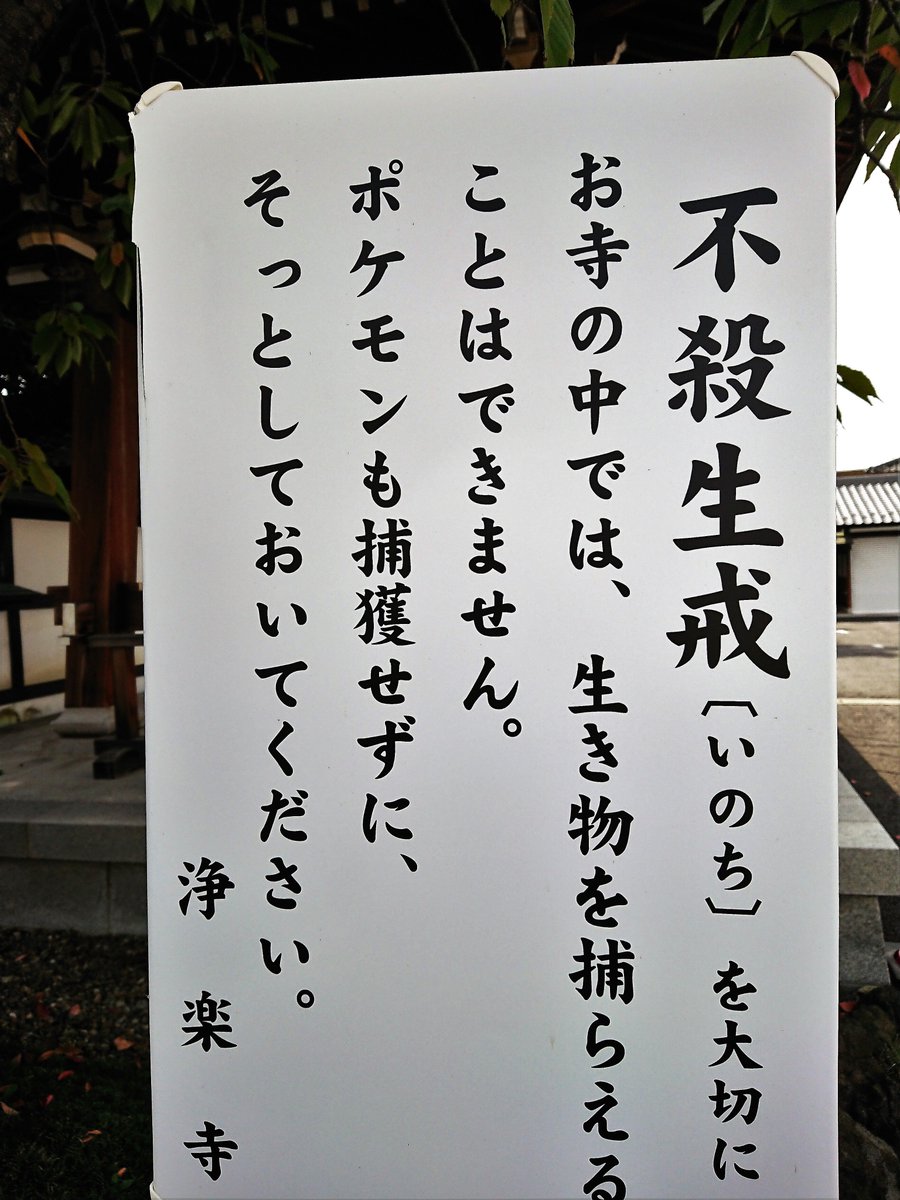 不殺生戒〔いのち〕を大切に
お寺の中では、生き物を捕らえる
ことはできません。
ポケモンも捕獲せずに、
そっとしておいてください。
浄楽寺